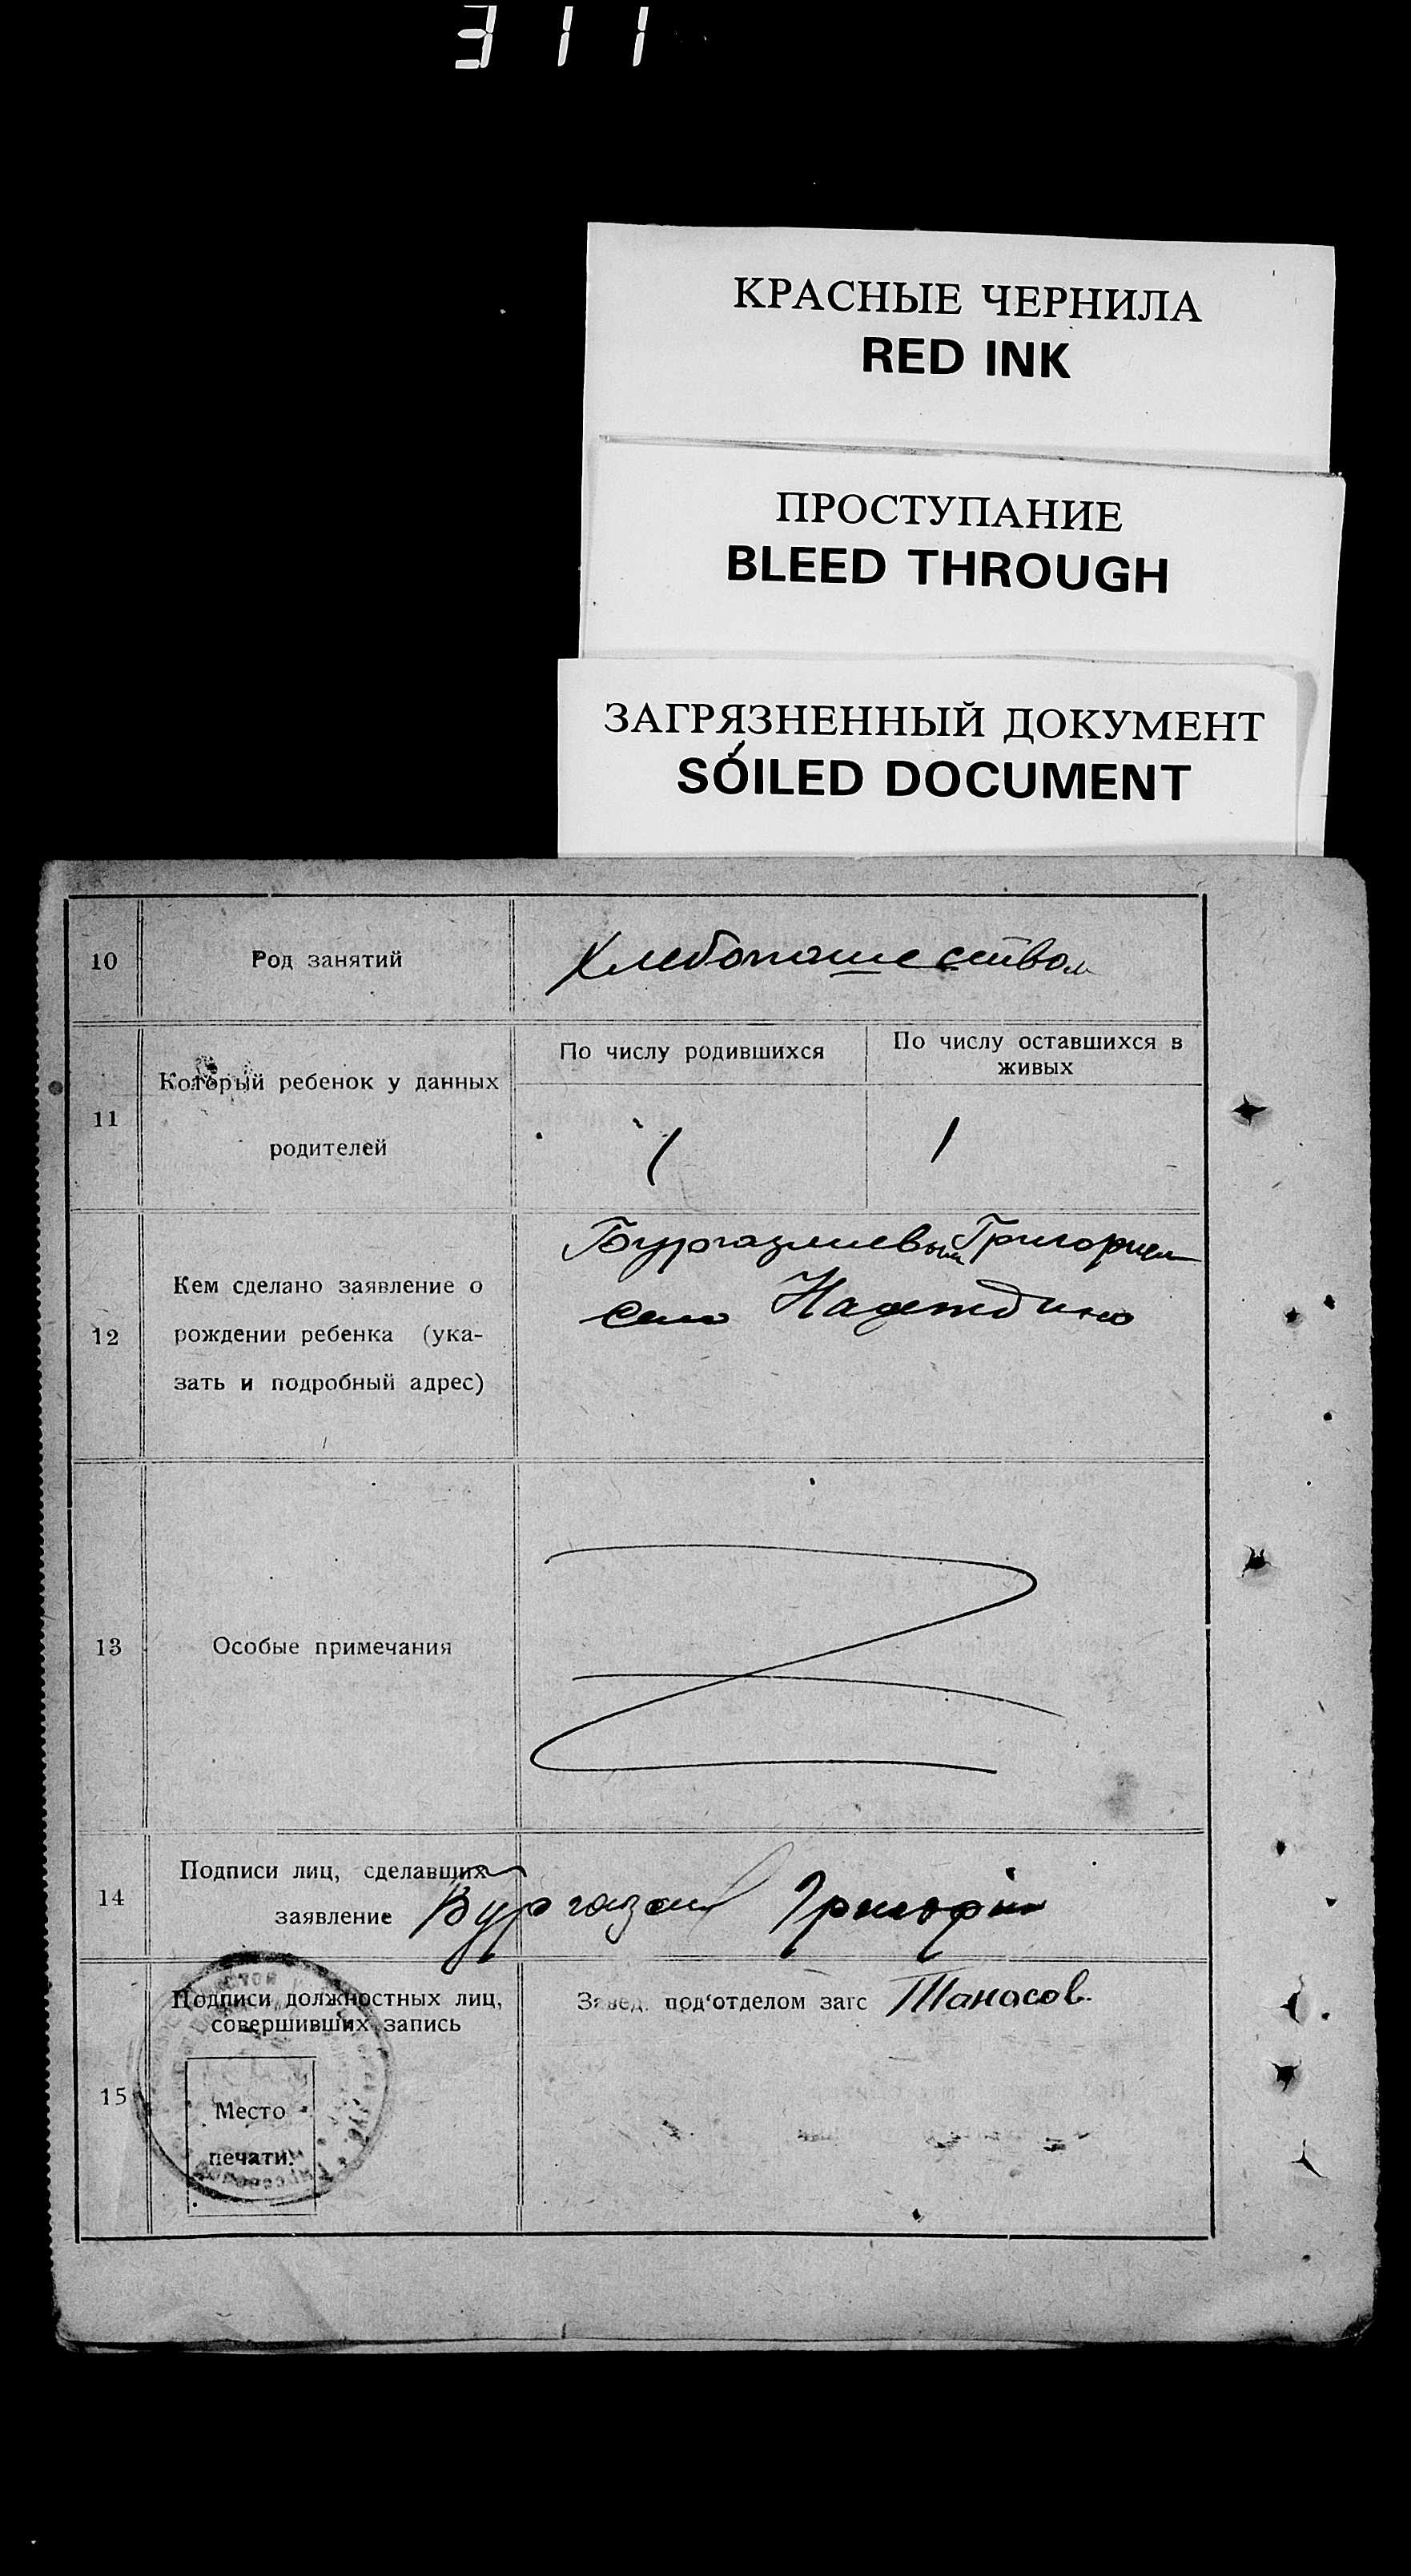 311
КРАСНЫЕ ЧЕРНИЛА
RED INK
ПРОСТУПАНИЕ
BLEED THROUGH
ЗАГРЯЗНЕННЫЙ ДОКУМЕНТ
SOILED DOCUMENT
10 Род занятий Хлебопашеством
11 Который ребенок у данных родителей
По числу родившихся
По числу оставшихся в
живых
1 1
12 Кем сделано заявление о
рождении ребенка (ука-
зать и подробный адрес)
Бургазлиевым Григорием
село Надеждино
13 Особые примечания
14 Подписи лиц, сделавших
заявление Григорiй
15 Подписи должностных лиц,
совершивших запись
Место
печати.
Завед. под'отделом загс Танасов.